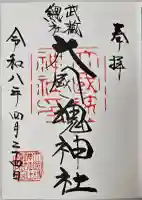 奉拝
武蔵
總社
大國魂神社
令和八年四月